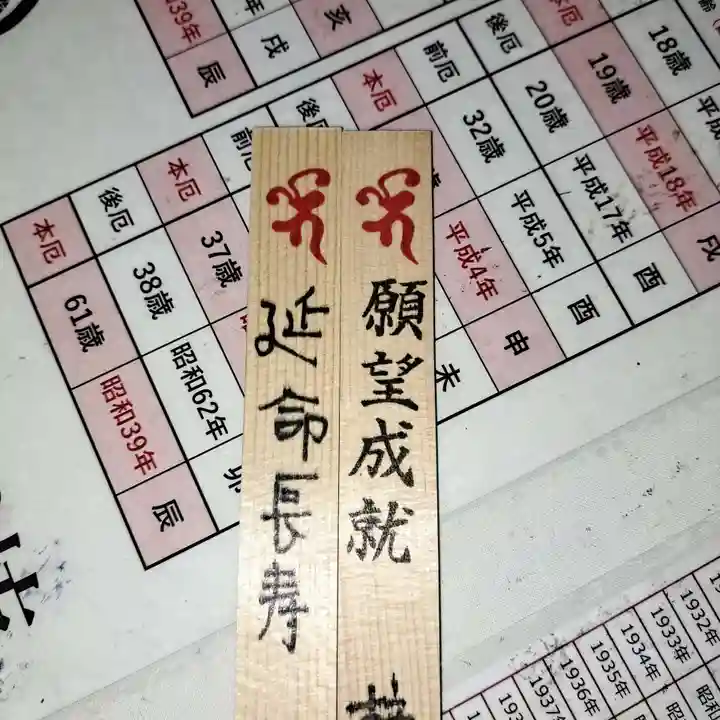 延命長寿
願望成就
39年
辰
戌
亥
本厄
後厄
前厄
本厄
後厄
前厄
本厄
後厄
厄
61歳
38歳
37歳
32歳
20歳
19歳
18歳
昭和39年
昭和62年
平成4年
平成5年
平成17年
平成18年
辰
卯
未
申
酉
酉
戌
1937年
1936年
1935年
1934年
1933年
1932年